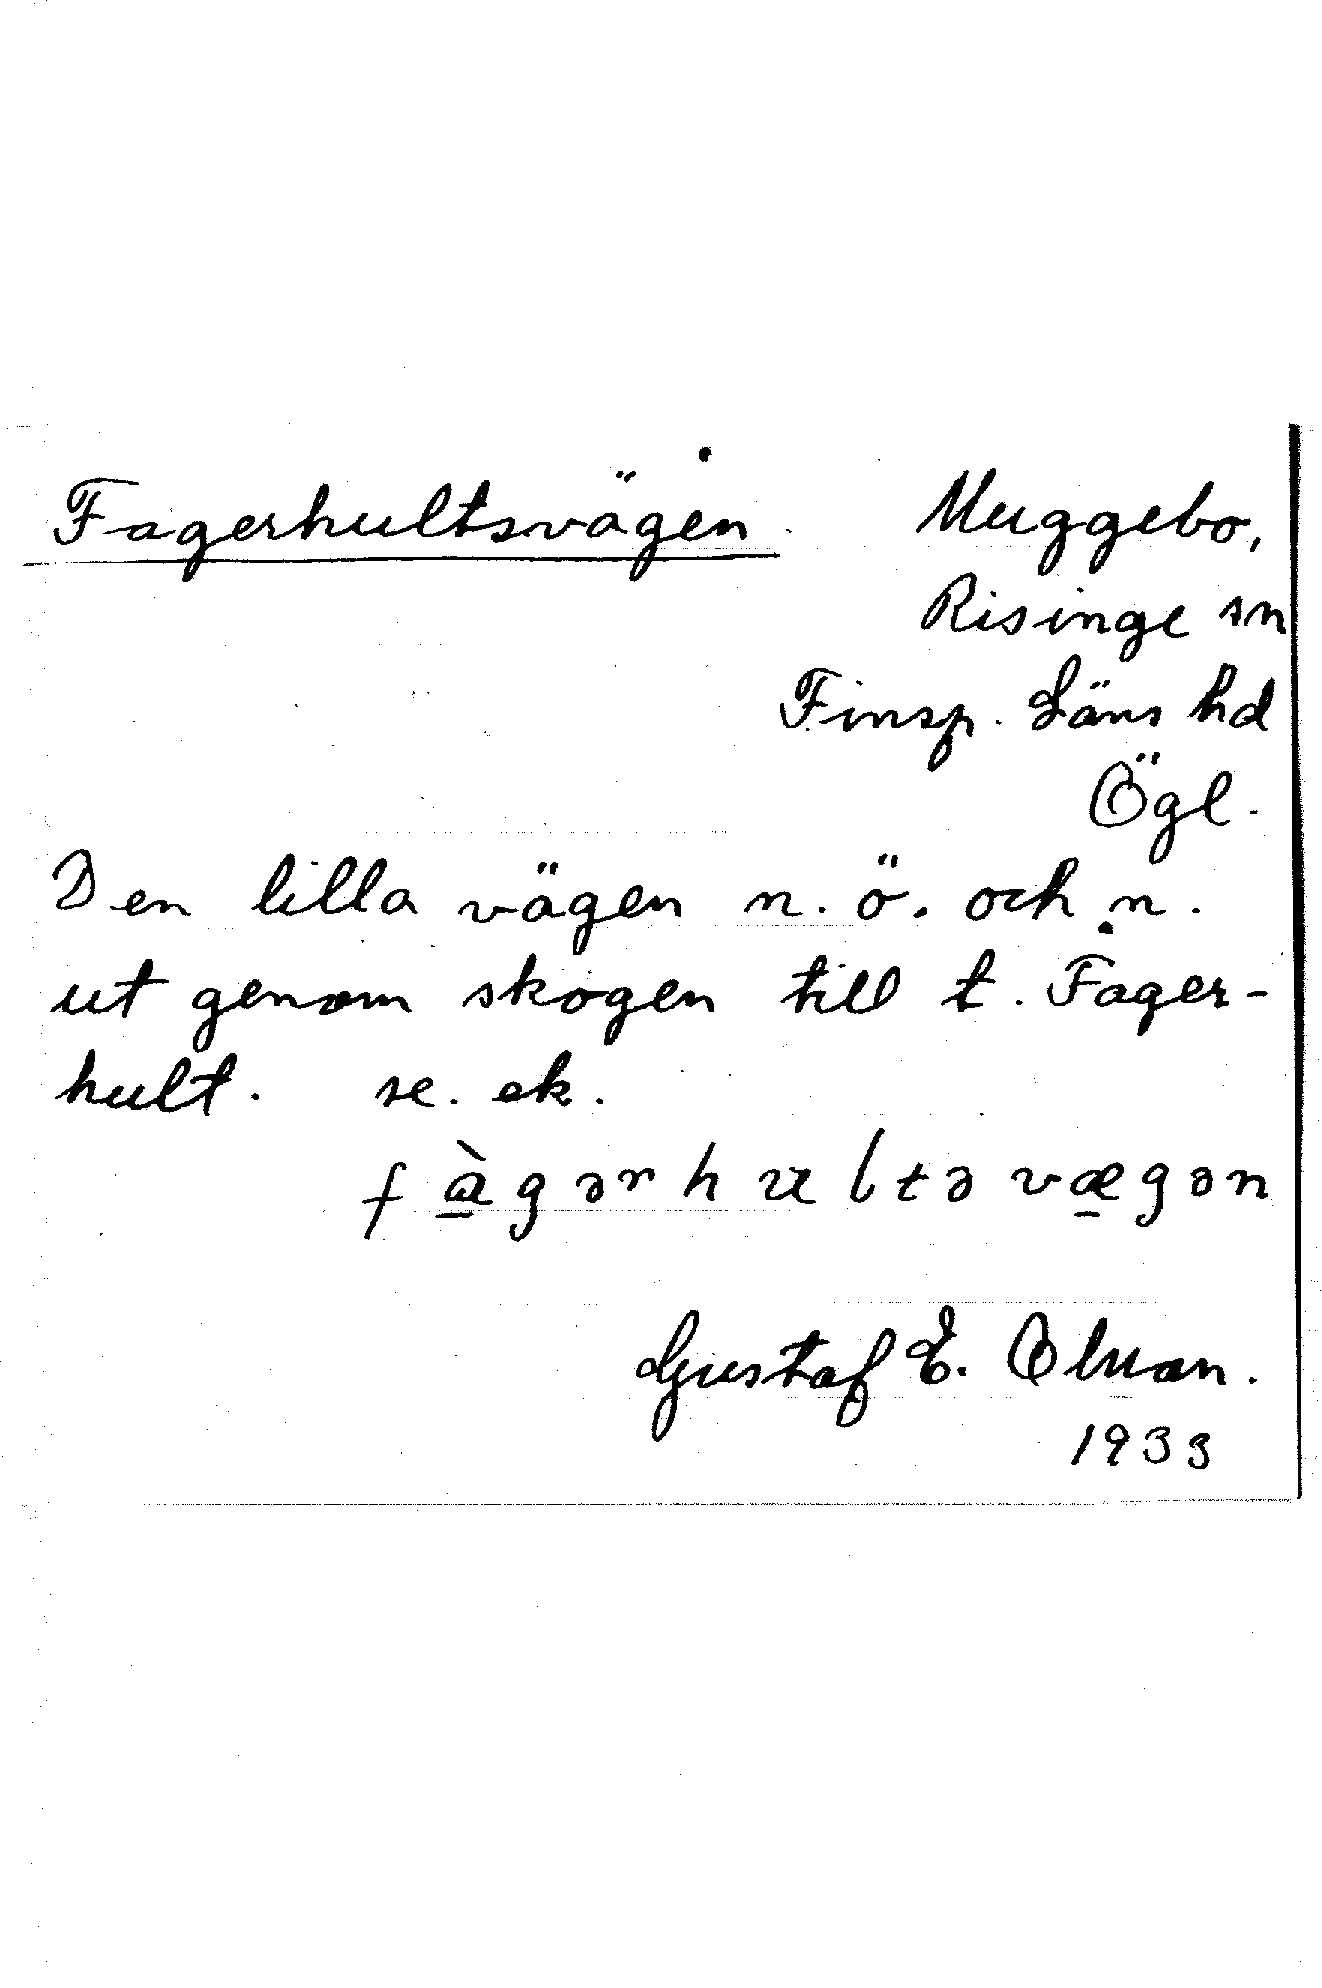 Fagerhultsvägen. Muggebo,
Risinge sn
Finsp. Läns hd
Ögl.
Den lilla vägen n. ö. och n.
ut genom skogen till t. Fager-
hult. se. ek.
fàgərhultəvægən
Gustaf E.
1933